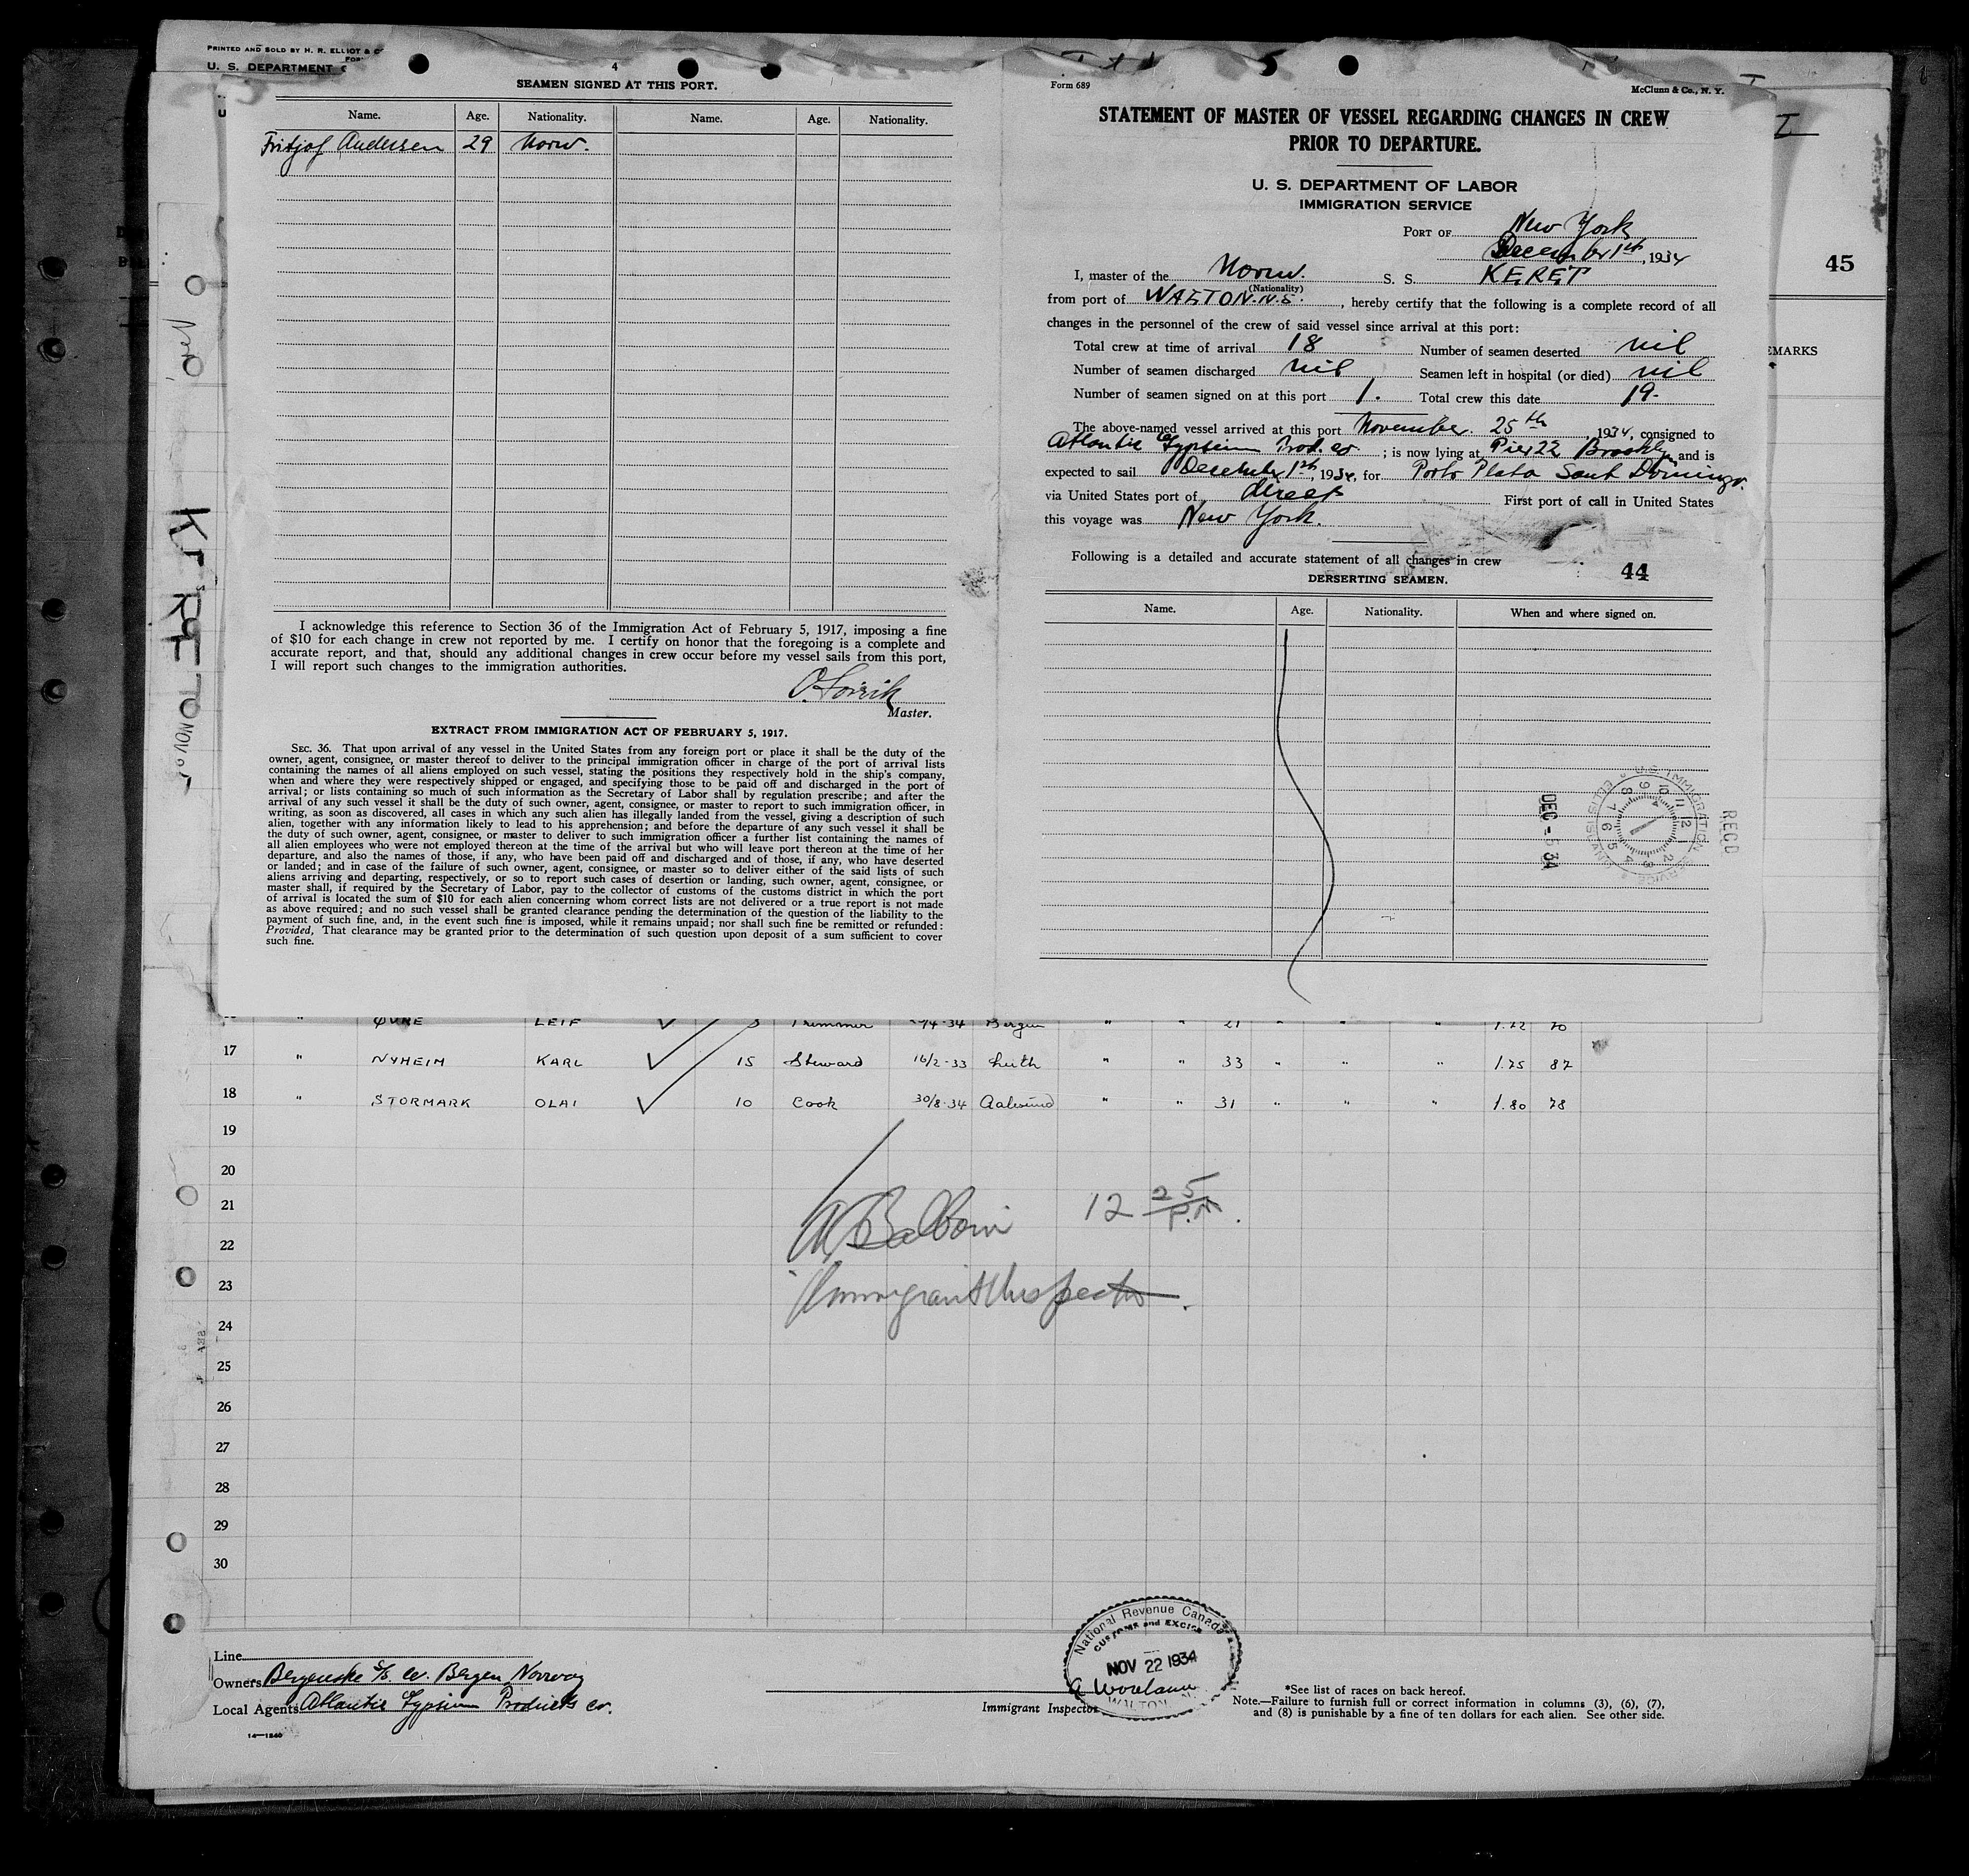 PRINTED AND SOLD BY H. R. ELLIOT & C
U. S. DEPARTMENT
4
SEAMEN SIGNED AT THIS PORT.
Name. Age. Nationality. Name. Age. Nationality.
Fritjof Andersen 29 Norw.
I acknowledge this reference to Section 36 of the Immigration Act of February 5, 1917, imposing a fine
of $10 for each change in crew not reported by me. I certify on honor that the foregoing is a complete and
accurate report, and that, should any additional changes in crew occur before my vessel sails from this port,
I will report such changes to the immigration authorities.
Master.
EXTRACT FROM IMMIGRATION ACT OF FEBRUARY 5, 1917.
SEC. 36. That upon arrival of any vessel in the United States from any foreign port or place it shall be the duty of the
owner, agent, consignee, or master thereof to deliver to the principal immigration officer in charge of the port of arrival lists
containing the names of all aliens employed on such vessel, stating the positions they respectively hold in the ship's company,
when and where they were respectively shipped or engaged, and specifying those to be paid off and discharged in the port of
arrival; or lists containing so much of such information as the Secretary of Labor shall by regulation prescribe; and after the
arrival of any such vessel it shall be the duty of such owner, agent, consignee, or master to report to such immigration officer, in
writing, as soon as discovered, all cases in which any such alien has illegally landed from the vessel, giving a description of such
alien, together with any information likely to lead to his apprehension; and before the departure of any such vessel it shall be
the duty of such owner, agent, consignee, or master to deliver to such immigration officer a further list containing the names of
all alien employees who were not employed thereon at the time of the arrival but who will leave port thereon at the time of her
departure, and also the names of those, if any, who have been paid off and discharged and of those, if any, who have deserted
or landed; and in case of the failure of such owner, agent, consignee, or master so to deliver either of the said lists of such
aliens arriving and departing, respectively, or so to report such cases of desertion or landing, such owner, agent, consignee, or
master shall, if required by the Secretary of Labor, pay to the collector of customs of the customs district in which the port
of arrival is located the sum of $10 for each alien concerning whom correct lists are not delivered or a true report is not made
as above required; and no such vessel shall be granted clearance pending the determination of the question of the liability to the
payment of such fine, and, in the event such fine is imposed, while it remains unpaid; nor shall such fine be remitted or refunded:
Provided, That clearance may be granted prior to the determination of such question upon deposit of a sum sufficient to cover
such fine.
Form 689 McClunn & Co., N. Y.
STATEMENT OF MASTER OF VESSEL REGARDING CHANGES IN CREW
PRIOR TO DEPARTURE.
U. S. DEPARTMENT OF LABOR
IMMIGRATION SERVICE
PORT OF New York
December 1st, 1934
I, master of the Norw. S. S. KERET
(Nationality)
from port of WALTON. N.S., hereby certify that the following is a complete record of all
changes in the personnel of the crew of said vessel since arrival at this port:
Total crew at time of arrival 18 Number of seamen deserted nil
Number of seamen discharged nil Seamen left in hospital (or died) nil
Number of seamen signed on at this port 1. Total crew this date 19-
The above-named vessel arrived at this port November. 25th, 1934, consigned to
Atlantic Gypsum Prod. co ; is now lying at Pier 22 Brooklyn and is
expected to sail December 1st, 1934, for Porto Plata Sant Domingo.
via United States port of direct First port of call in United States
this voyage was New York.
Following is a detailed and accurate statement of all changes in crew
44
DERSERTING SEAMEN.
Name. Age. Nationality. When and where signed on.
RECD
U.S. IMMIGRATION SERVICE
DEC - 5 34
45
EMARKS
KERET
ØVRE LEIF Trimmer Bergen " " 21 " " " 1.72 70
17 " NYHEIM KARL 15 Steward 16/2-33 Leith " " 33 " " " 1.75 87
18 " STORMARK OLAI 10 Cook 30/8-34 Aalesund " " 31 " " " 1.80 78
19
20
21
22
23
24
25
26
27
28
29
30
12 25 P.M.
Immigrant Inspector.
Line
Owners Bergenske S/S. co. Bergen Norway
Local Agents Atlantic Gypsum Products Co.
14—1240
National Revenue Canada
CUSTOMS and EXCISE
NOV 22 1934
WALTON
Immigrant Inspector
*See list of races on back hereof.
Note.—Failure to furnish full or correct information in columns (3), (6), (7),
and (8) is punishable by a fine of ten dollars for each alien. See other side.